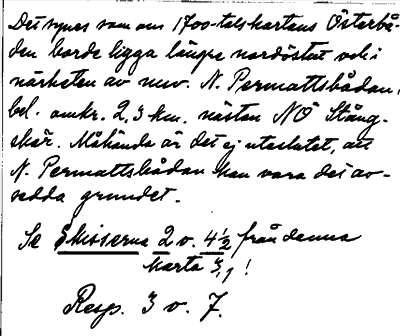 Det synes som om 1700-talskartans Österbå-
den borde ligga längre nordöstut och i
närheten av nuv. N. Permattsbådan,
bel. omkr. 2,3 km. nästan NO Stång-
skär. Måhända är det ej uteslutet, att
N. Permattsbådan kan vara det av-
sedda grundet.
Se Skisserna 2 o. 4½ från denna
karta 3,1!
Resp. 3 o. 7.